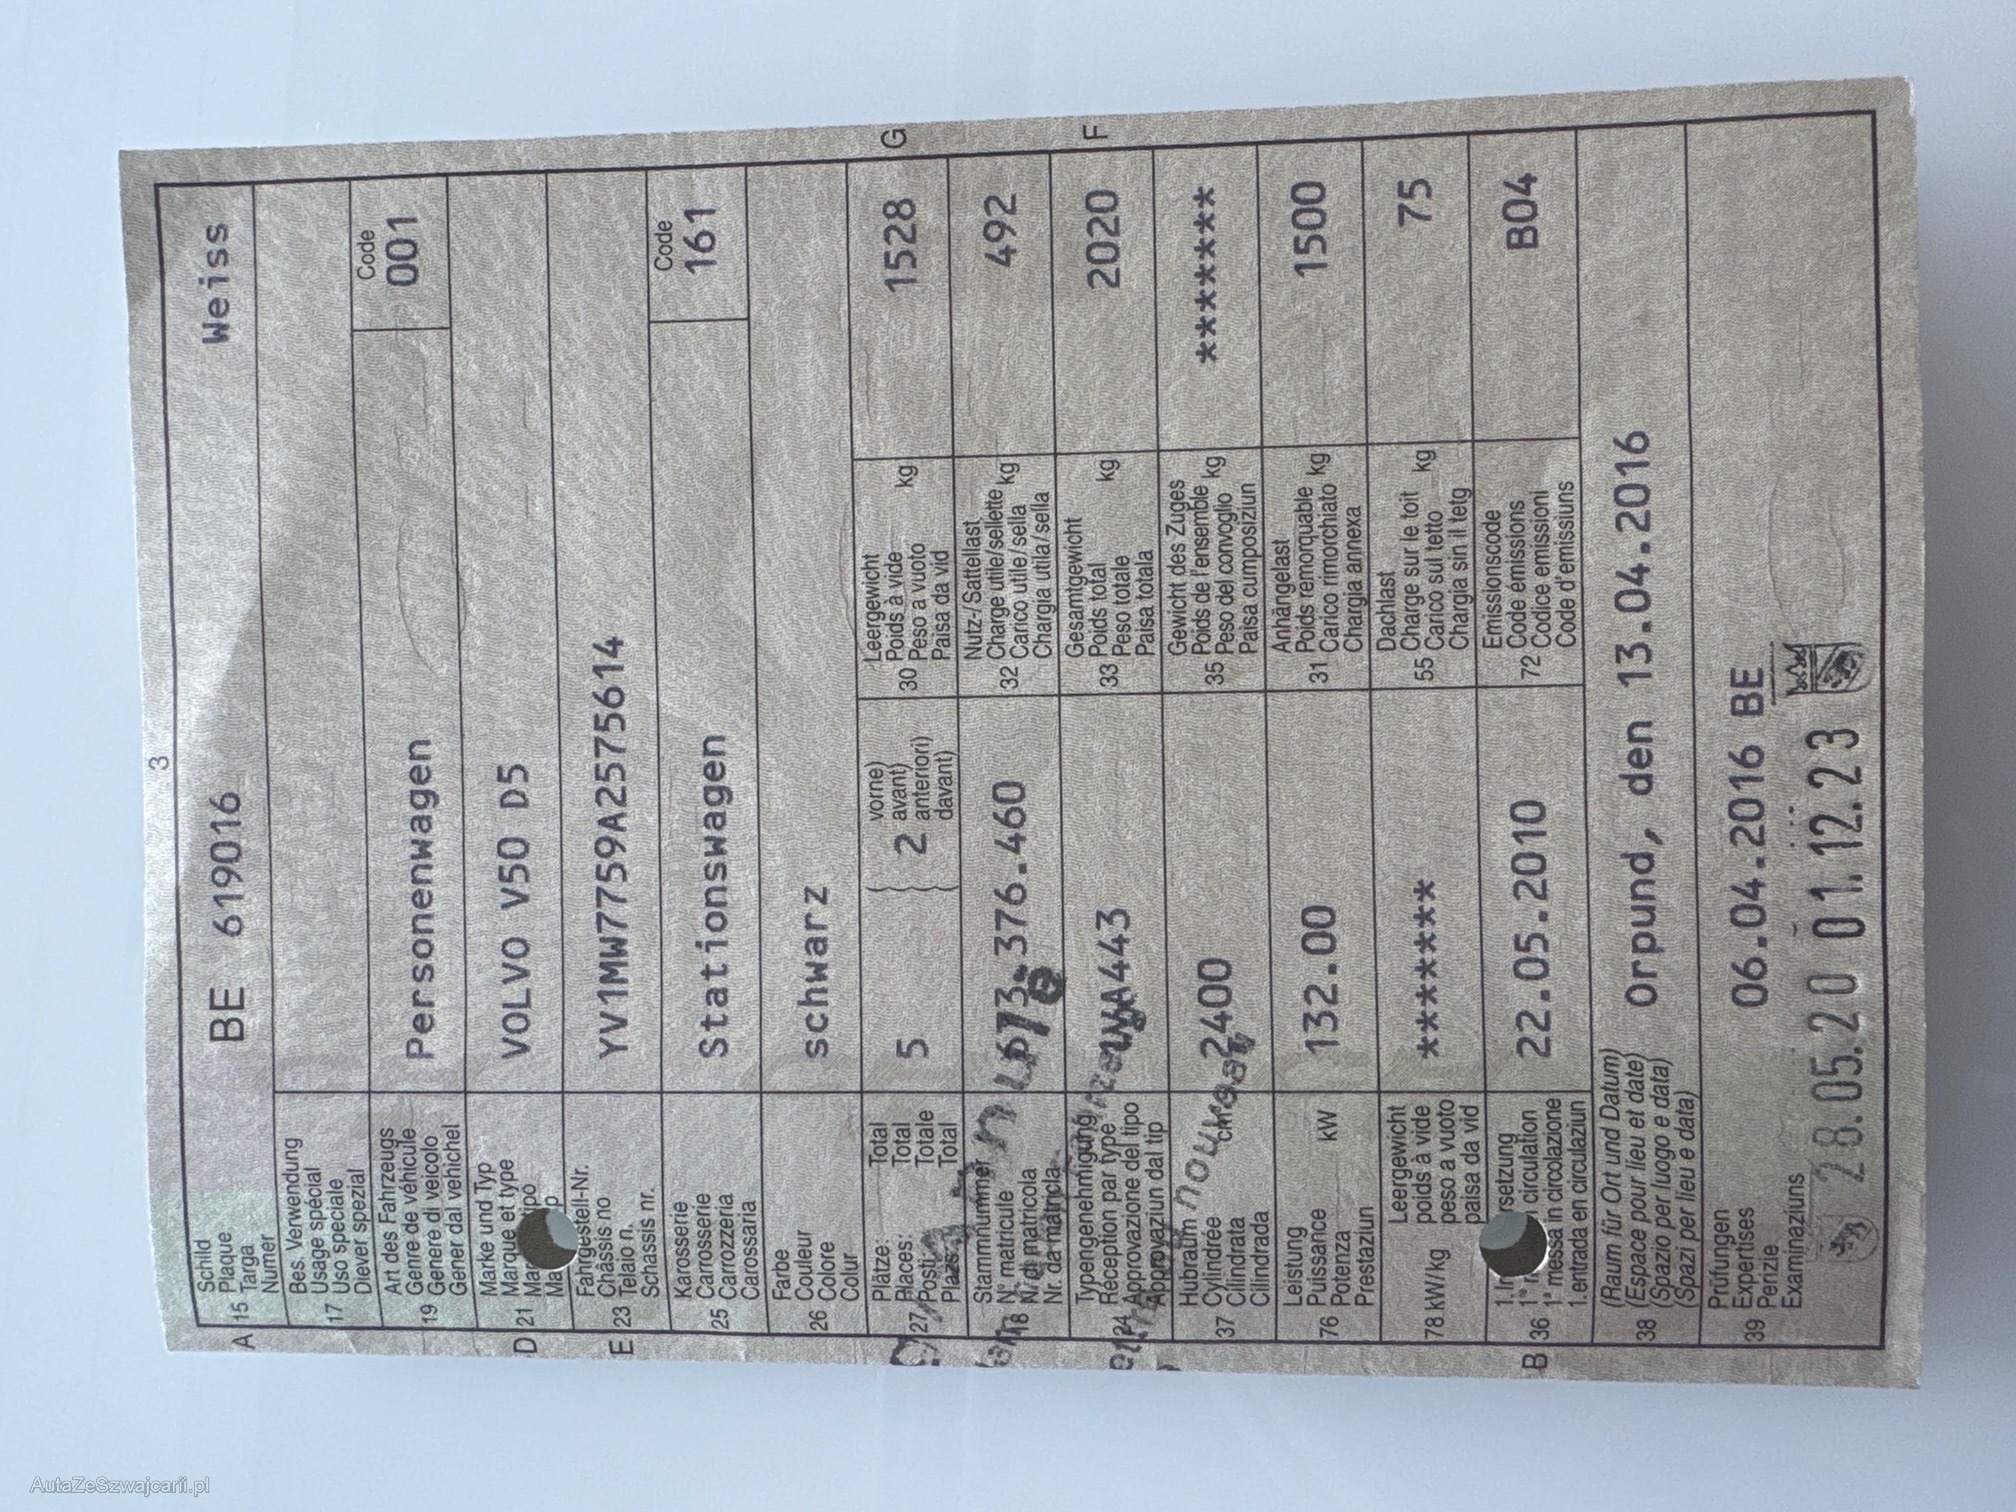 3
A 15 Schild BE 619016 Weiss
Plaque
Targa
Numer
17 Bes. Verwendung
Usage spécial
Uso speciale
Diever spezial
19 Art des Fahrzeugs Personenwagen Code 001
Genre de véhicule
Genere di veicolo
Gener dal vehichel
D 21 Marke und Typ VOLVO V50 D5
Marque et type
E 23 Fahrgestell-Nr. YV1MW7759A2575614
Châssis no
Telaio n.
Schassis nr.
25 Karosserie Stationswagen Code 161
Carrosserie
Carrozzeria
Carossaria
26 Farbe schwarz
Couleur
Colore
Colur
27 Plätze: Total 5 { 2 vorne)
Places: Total avant)
Posti: Totale anteriori)
Total davant)
30 Leergewicht kg 1528 G
Poids à vide
Peso a vuoto
Paisa da vid
18 Stammnummer 673.376.460
N° matricule
N. di matricola
Nr. da matricla
32 Nutz-/Sattellast kg 492
Charge utile/sellette
Carico utile/sella
Chargia utila/sella
24 Typengenehmigung A443
Réception par type
Approvazione del tipo
Approvaziun dal tip
33 Gesamtgewicht kg 2020 F
Poids total
Peso totale
Paisa totala
37 Hubraum cm³ 2400
Cylindrée
Cilindrata
Cilindrada
35 Gewicht des Zuges kg *******
Poids de l'ensemble
Peso del convoglio
Paisa cumposiziun
76 Leistung kW 132.00
Puissance
Potenza
Prestaziun
31 Anhängelast kg 1500
Poids remorquable
Carico rimorchiato
Chargia annexa
78 kW/kg Leergewicht *******
poids à vide
peso a vuoto
paisa da vid
55 Dachlast kg 75
Charge sur le toit
Carico sul tetto
Chargia sin il tetg
B 36 22.05.2010
circulation
1ª messa in circolazione
1.entrada en circulaziun
72 Emissionscode B04
Code émissions
Codice emissioni
Code d'emissiuns
38 (Raum für Ort und Datum) Orpund, den 13.04.2016
(Espace pour lieu et date)
(Spazio per luogo e data)
(Spazi per lieu e data)
39 Prüfungen 06.04.2016 BE
Expertises
Perizie
Examinaziuns
28.05.20 01.12.23
AutaZeSzwajcarii.pl